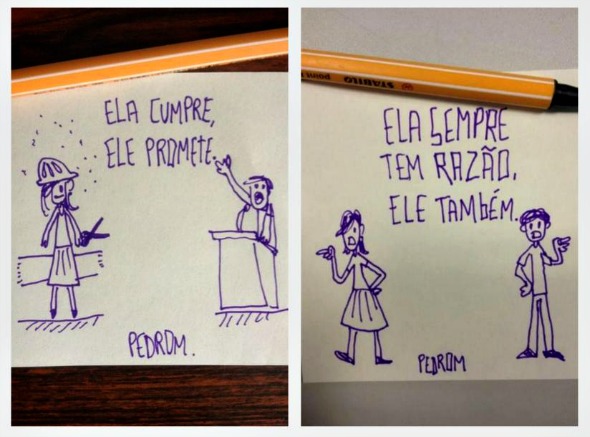 ELA CUMPRE,
ELE PROMETE.
PEDROM.
STABILO
point
ELA SEMPRE
TEM RAZÃO,
ELE TAMBÉM.
PEDROM